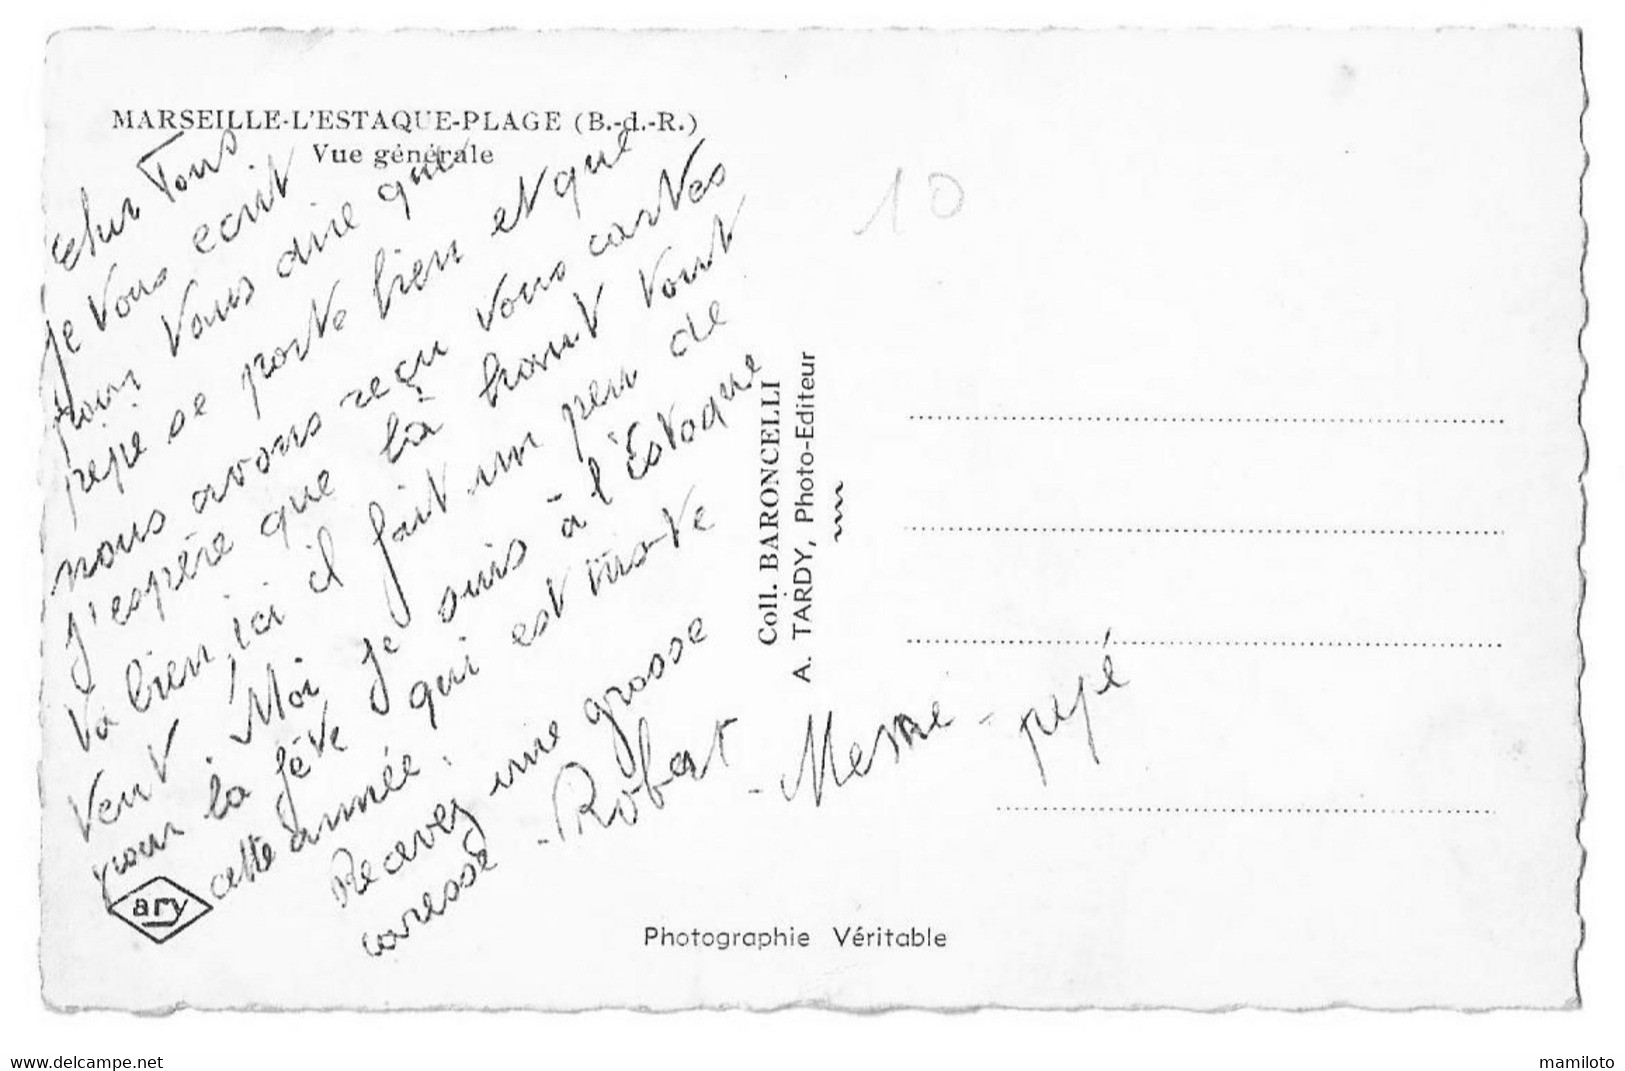 MARSEILLE-L'ESTAQUE-PLAGE (B.-d.-R.)
Vue générale
Cher Tous
Je vous ecrit
pour vous dire que
pepé se porte bien et que
nous avons reçu vous cartes
J'espère que là haut tout
va bien, ici il fait un peu de
vent. Moi je suis à l'Estaque
pour la fête qui est mate
cette année.
Recevez une grosse
caresse - Robert - Meme - pepé
10
Coll. BARONCELLI
A. TARDY, Photo-Editeur
ary
Photographie Véritable
www.delcampe.net
mamiloto